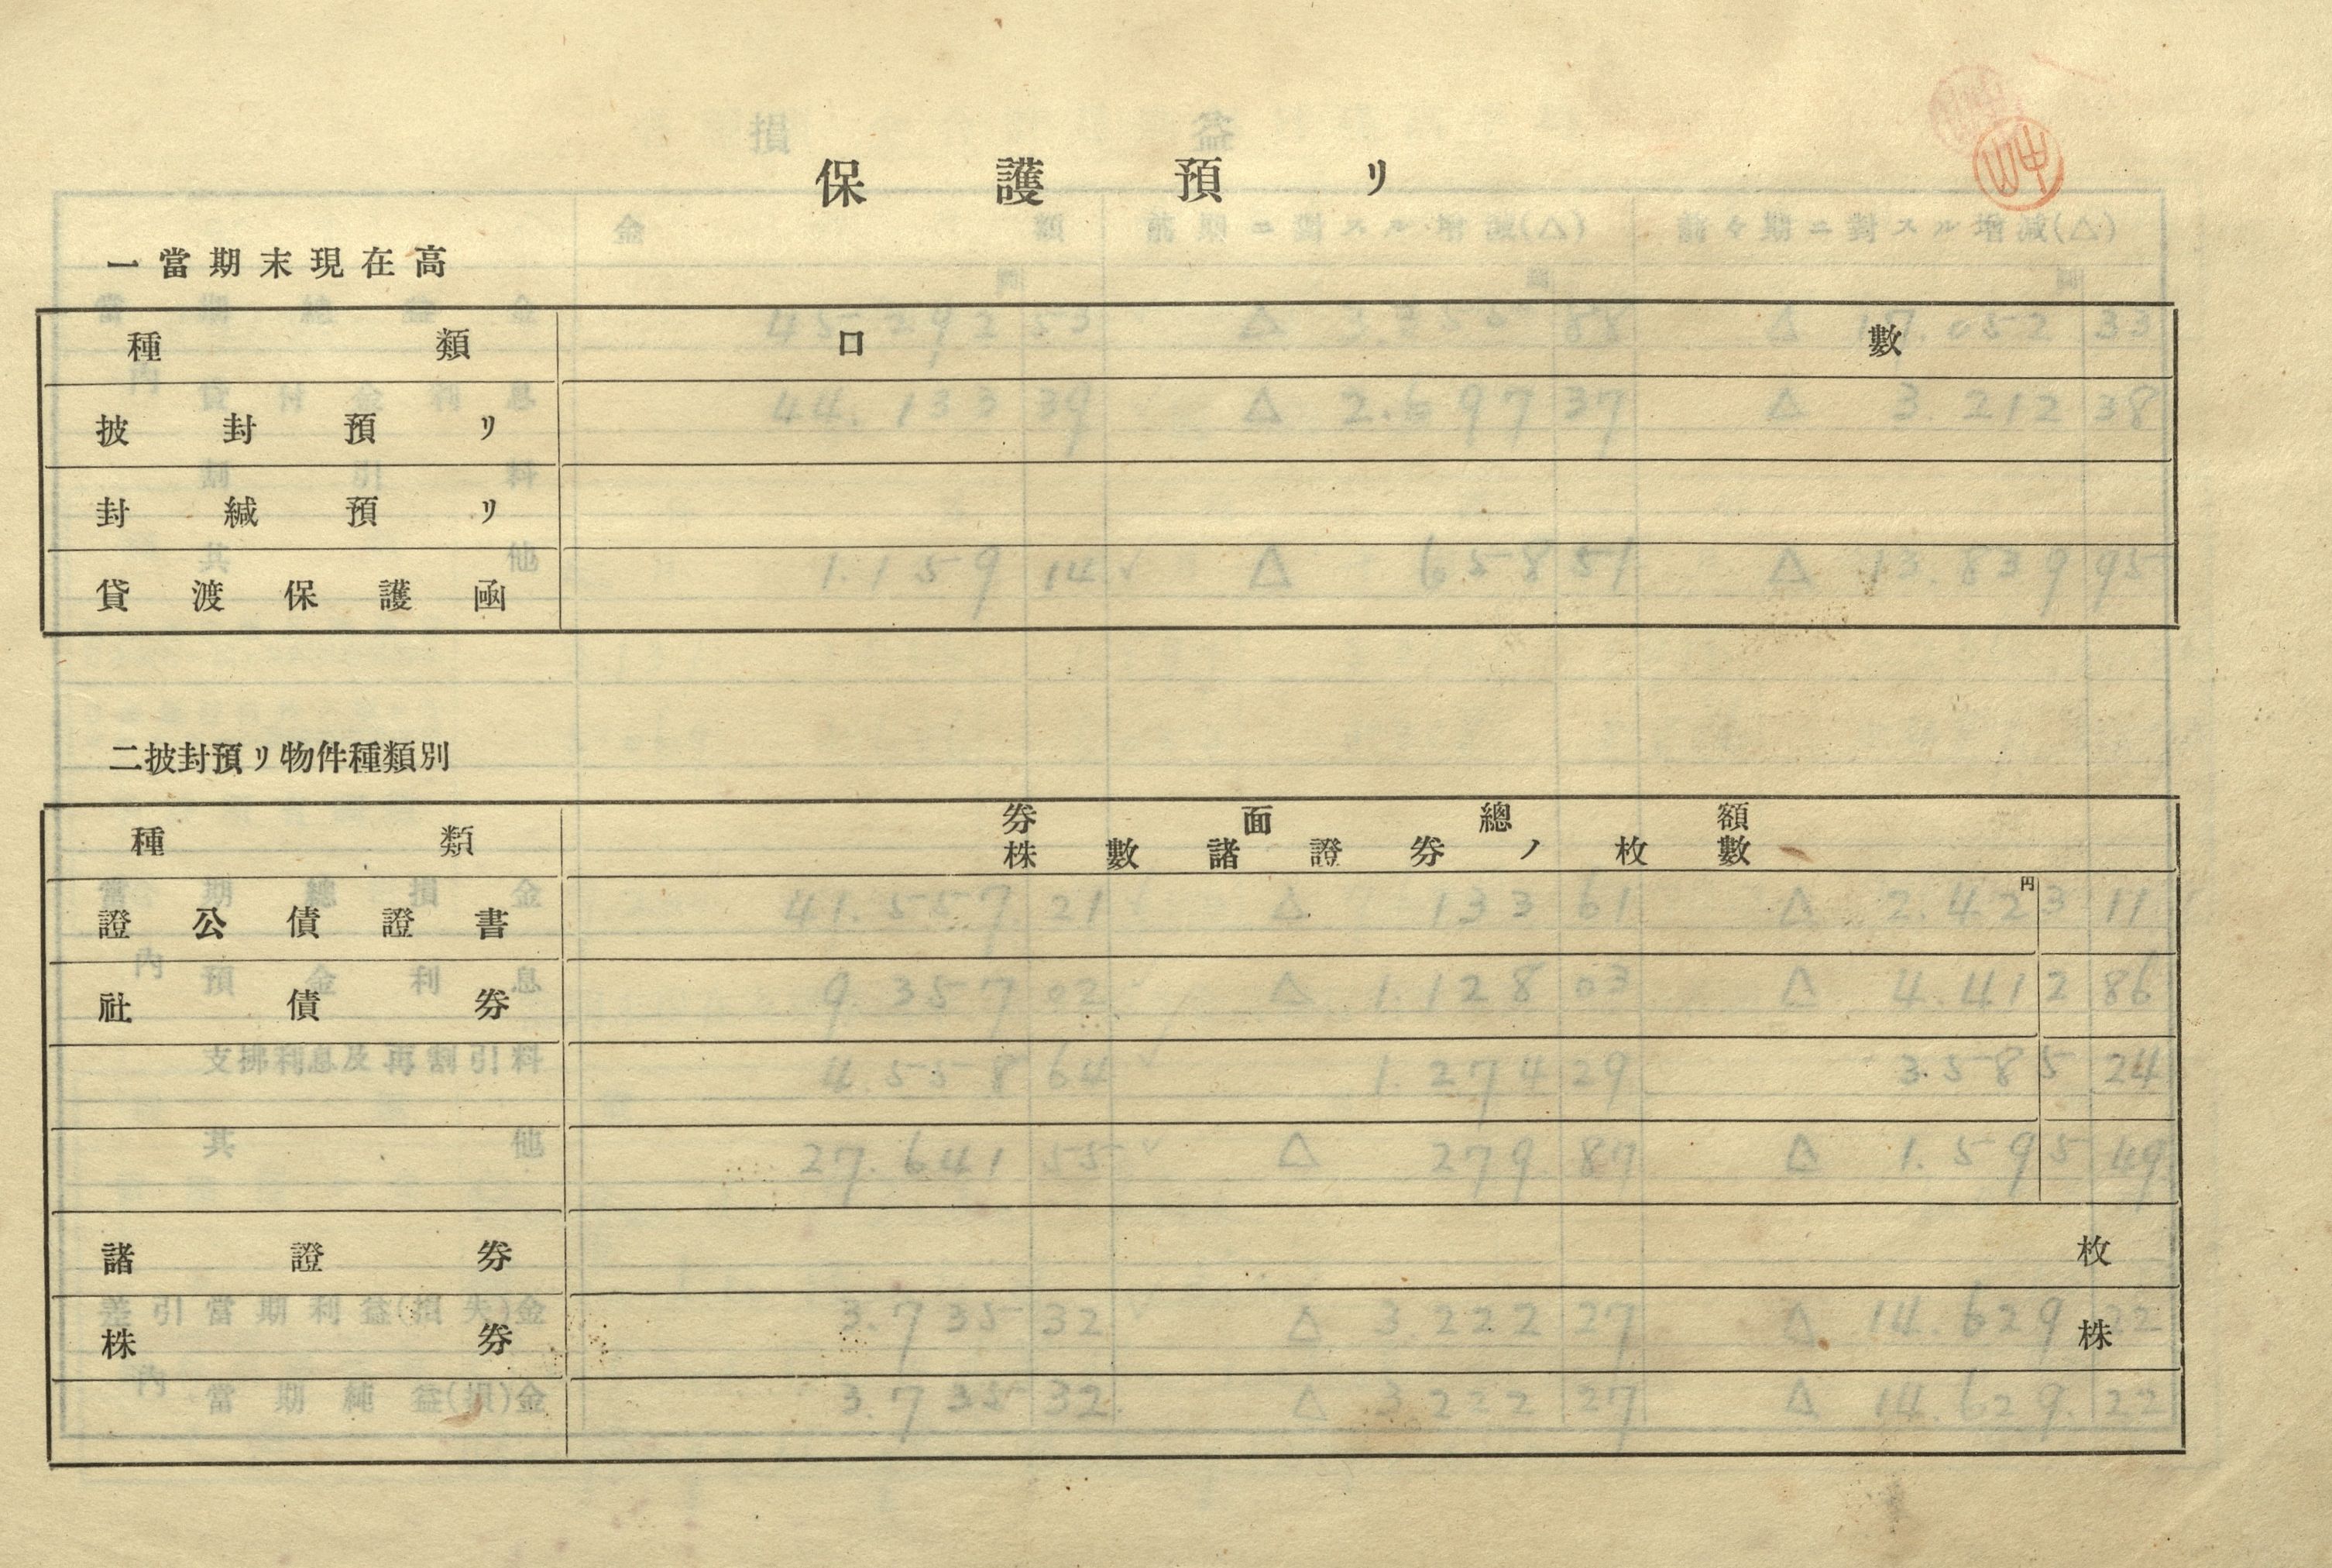 保護預リ
一當期末現在高
種類 口數
披封預リ
封緘預リ
貸渡保護凾
二披封預リ物件種類別
種類 券面總額
株數諸證券ノ枚數
円
證公債證書
社債券
諸證券 枚
株券 株
損益
金額 前期ニ對スル增減(△)前々期ニ對スル增減(△)
當期總益金
內 貸付金利息 44.133 39 △ 2.697 37 △ 3.212 38
割引料
其他 1.159 14 △ 658 51 △ 13.839 95
當期總損金 41.557 21 △ 133 61 △ 2.423 11
內 預金利息 9.357 02 △ 1.128 03 △ 4.412 86
支拂利息及再割引料 4.558 64 1.274 29 3.585 24
其他 27.641 55 △ 279 87 △ 1.595 49
差引當期利益(損失)金 3.735 32 △ 3.222 27 △ 14.629 22
內 當期純益(損)金 3.735 32 △ 3.222 27 △ 14.629 22